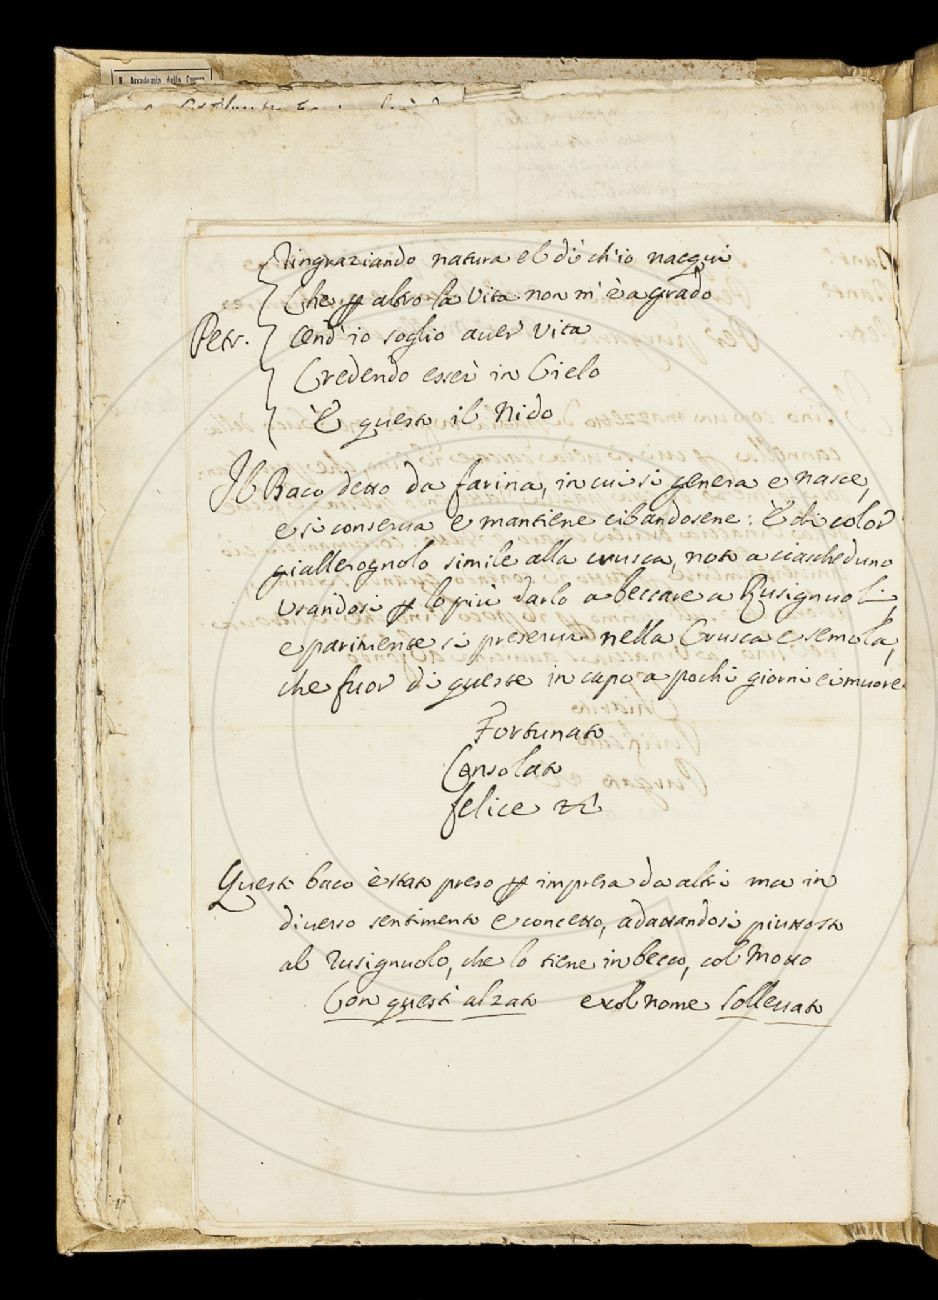 R. Accademia della Crusca
Ringraziando natura e'l dì ch'io nacqui
Che p altro la Vita non m'è a grado
Petr. Ond'io soglio auer vita
Credendo esser in Cielo
È questo il Nido
Il Baco detto da farina, in cui si genera e nasce,
e si conserua e mantiene cibandosene: È di color
giallerognolo simile alla crusca, noto a ciascheduno
usandosi p lo più darlo a beccare a Rusignuoli,
e parimente si preserua nella Crusca e semola,
che fuor di queste in capo a pochi giorni ei muore.
Fortunato
Consolato
felice &c
Questo baco è stato preso p impresa da altri ma in
diuerso sentimento e concetto, adattandosi piuttosto
al rusignuolo, che lo tiene in becco, col Motto
Con questi alzato e col nome Solleuato